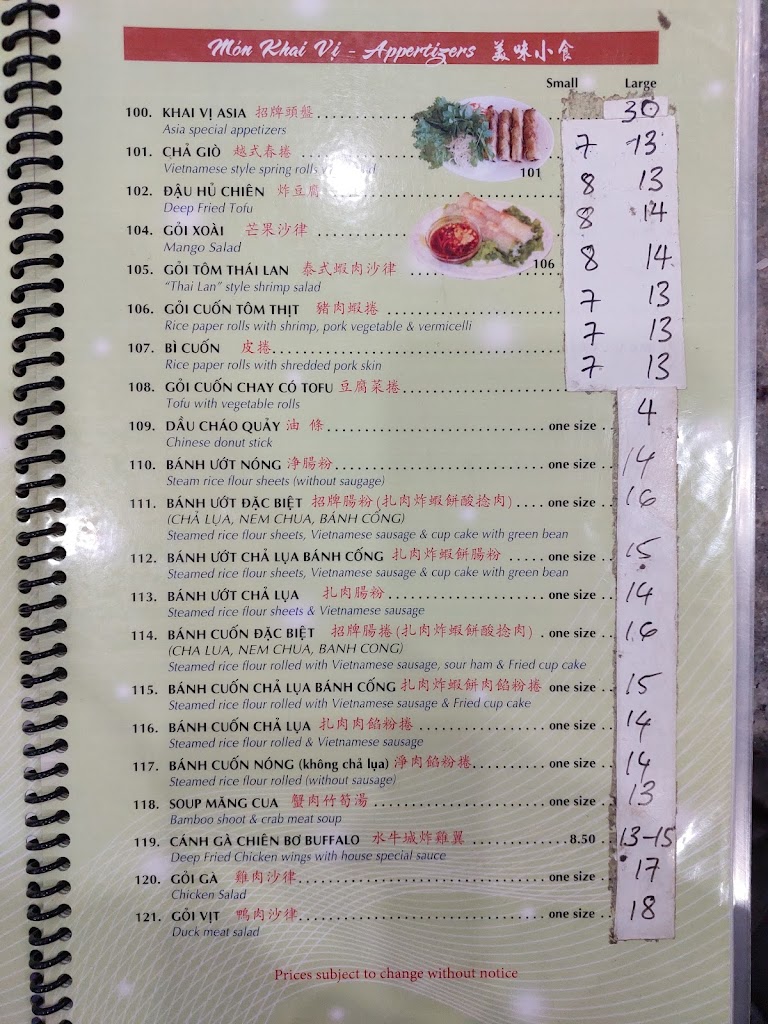 Món Khai Vị - Appertizers 美味小食
Small Large
100. KHAI VỊ ASIA 招牌頭盤 30
Asia special appetizers
101. CHẢ GIÒ 越式春捲 7 13
Vietnamese style spring rolls
101
102. ĐẬU HỦ CHIÊN 炸豆腐 8 13
Deep Fried Tofu
104. GỎI XOÀI 芒果沙律 8 14
Mango Salad
105. GỎI TÔM THÁI LAN 泰式蝦肉沙律 8 14
"Thai Lan" style shrimp salad
106
106. GỎI CUỐN TÔM THỊT 豬肉蝦捲 7 13
Rice paper rolls with shrimp, pork vegetable & vermicelli
107. BÌ CUỐN 皮捲 7 13
Rice paper rolls with shredded pork skin
108. GỎI CUỐN CHAY CÓ TOFU 豆腐菜捲 7 13
Tofu with vegetable rolls
109. DẦU CHÁO QUẢY 油 條 one size 4
Chinese donut stick
110. BÁNH ƯỚT NÓNG 淨腸粉 one size 14
Steam rice flour sheets (without saugage)
111. BÁNH ƯỚT ĐẶC BIỆT 招牌腸粉(扎肉炸蝦餅酸捻肉) one size 16
(CHẢ LỤA, NEM CHUA, BÁNH CỐNG)
Steamed rice flour sheets, Vietnamese sausage & cup cake with green bean
112. BÁNH ƯỚT CHẢ LỤA BÁNH CỐNG 扎肉炸蝦餅腸粉 one size 15
Steamed rice flour sheets, Vietnamese sausage & cup cake with green bean
113. BÁNH ƯỚT CHẢ LỤA 扎肉腸粉 one size 14
Steamed rice flour sheets & Vietnamese sausage
114. BÁNH CUỐN ĐẶC BIỆT 招牌腸捲(扎肉炸蝦餅酸捻肉) one size 16
(CHA LUA, NEM CHUA, BANH CONG)
Steamed rice flour rolled with Vietnamese sausage, sour ham & Fried cup cake
115. BÁNH CUỐN CHẢ LỤA BÁNH CỐNG 扎肉炸蝦餅肉餡粉捲 one size 15
Steamed rice flour rolled with Vietnamese sausage & Fried cup cake
116. BÁNH CUỐN CHẢ LỤA 扎肉肉餡粉捲 one size 14
Steamed rice flour rolled & Vietnamese sausage
117. BÁNH CUỐN NÓNG (không chả lụa) 淨肉餡粉捲 one size 14
Steamed rice flour rolled (without sausage)
118. SOUP MĂNG CUA 蟹肉竹筍湯 one size 13
Bamboo shoot & crab meat soup
119. CÁNH GÀ CHIÊN BƠ BUFFALO 水牛城炸雞翼 8.50 13-15
Deep Fried Chicken wings with house special sauce
120. GỎI GÀ 雞肉沙律 one size 17
Chicken Salad
121. GỎI VỊT 鴨肉沙律 one size 18
Duck meat salad
Prices subject to change without notice